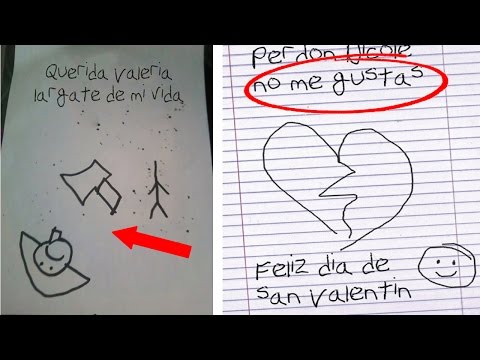 Querida Valeria
largate de mi vida
Perdon Nicole
no me gustas
Feliz dia de
san valentin